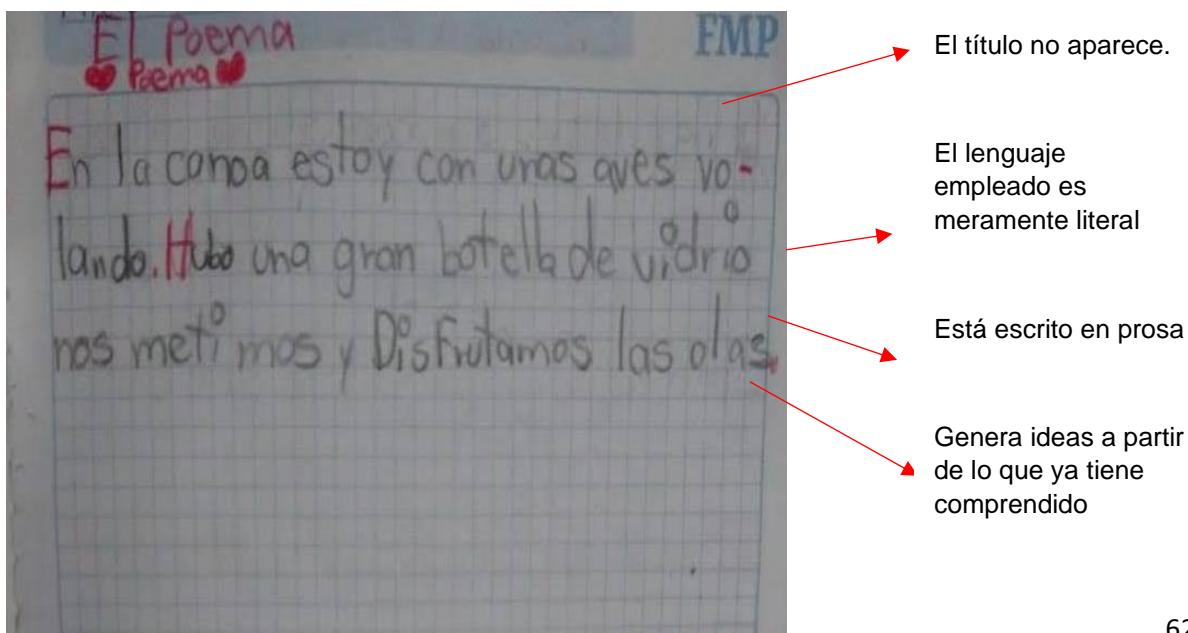 El Poema
FMP
Poema
En la canoa estoy con unas aves vo-
lando. Hubo una gran botella de vidrio
nos metimos y Disfrutamos las olas.
El título no aparece.
El lenguaje
empleado es
meramente literal
Está escrito en prosa
Genera ideas a partir
de lo que ya tiene
comprendido
62